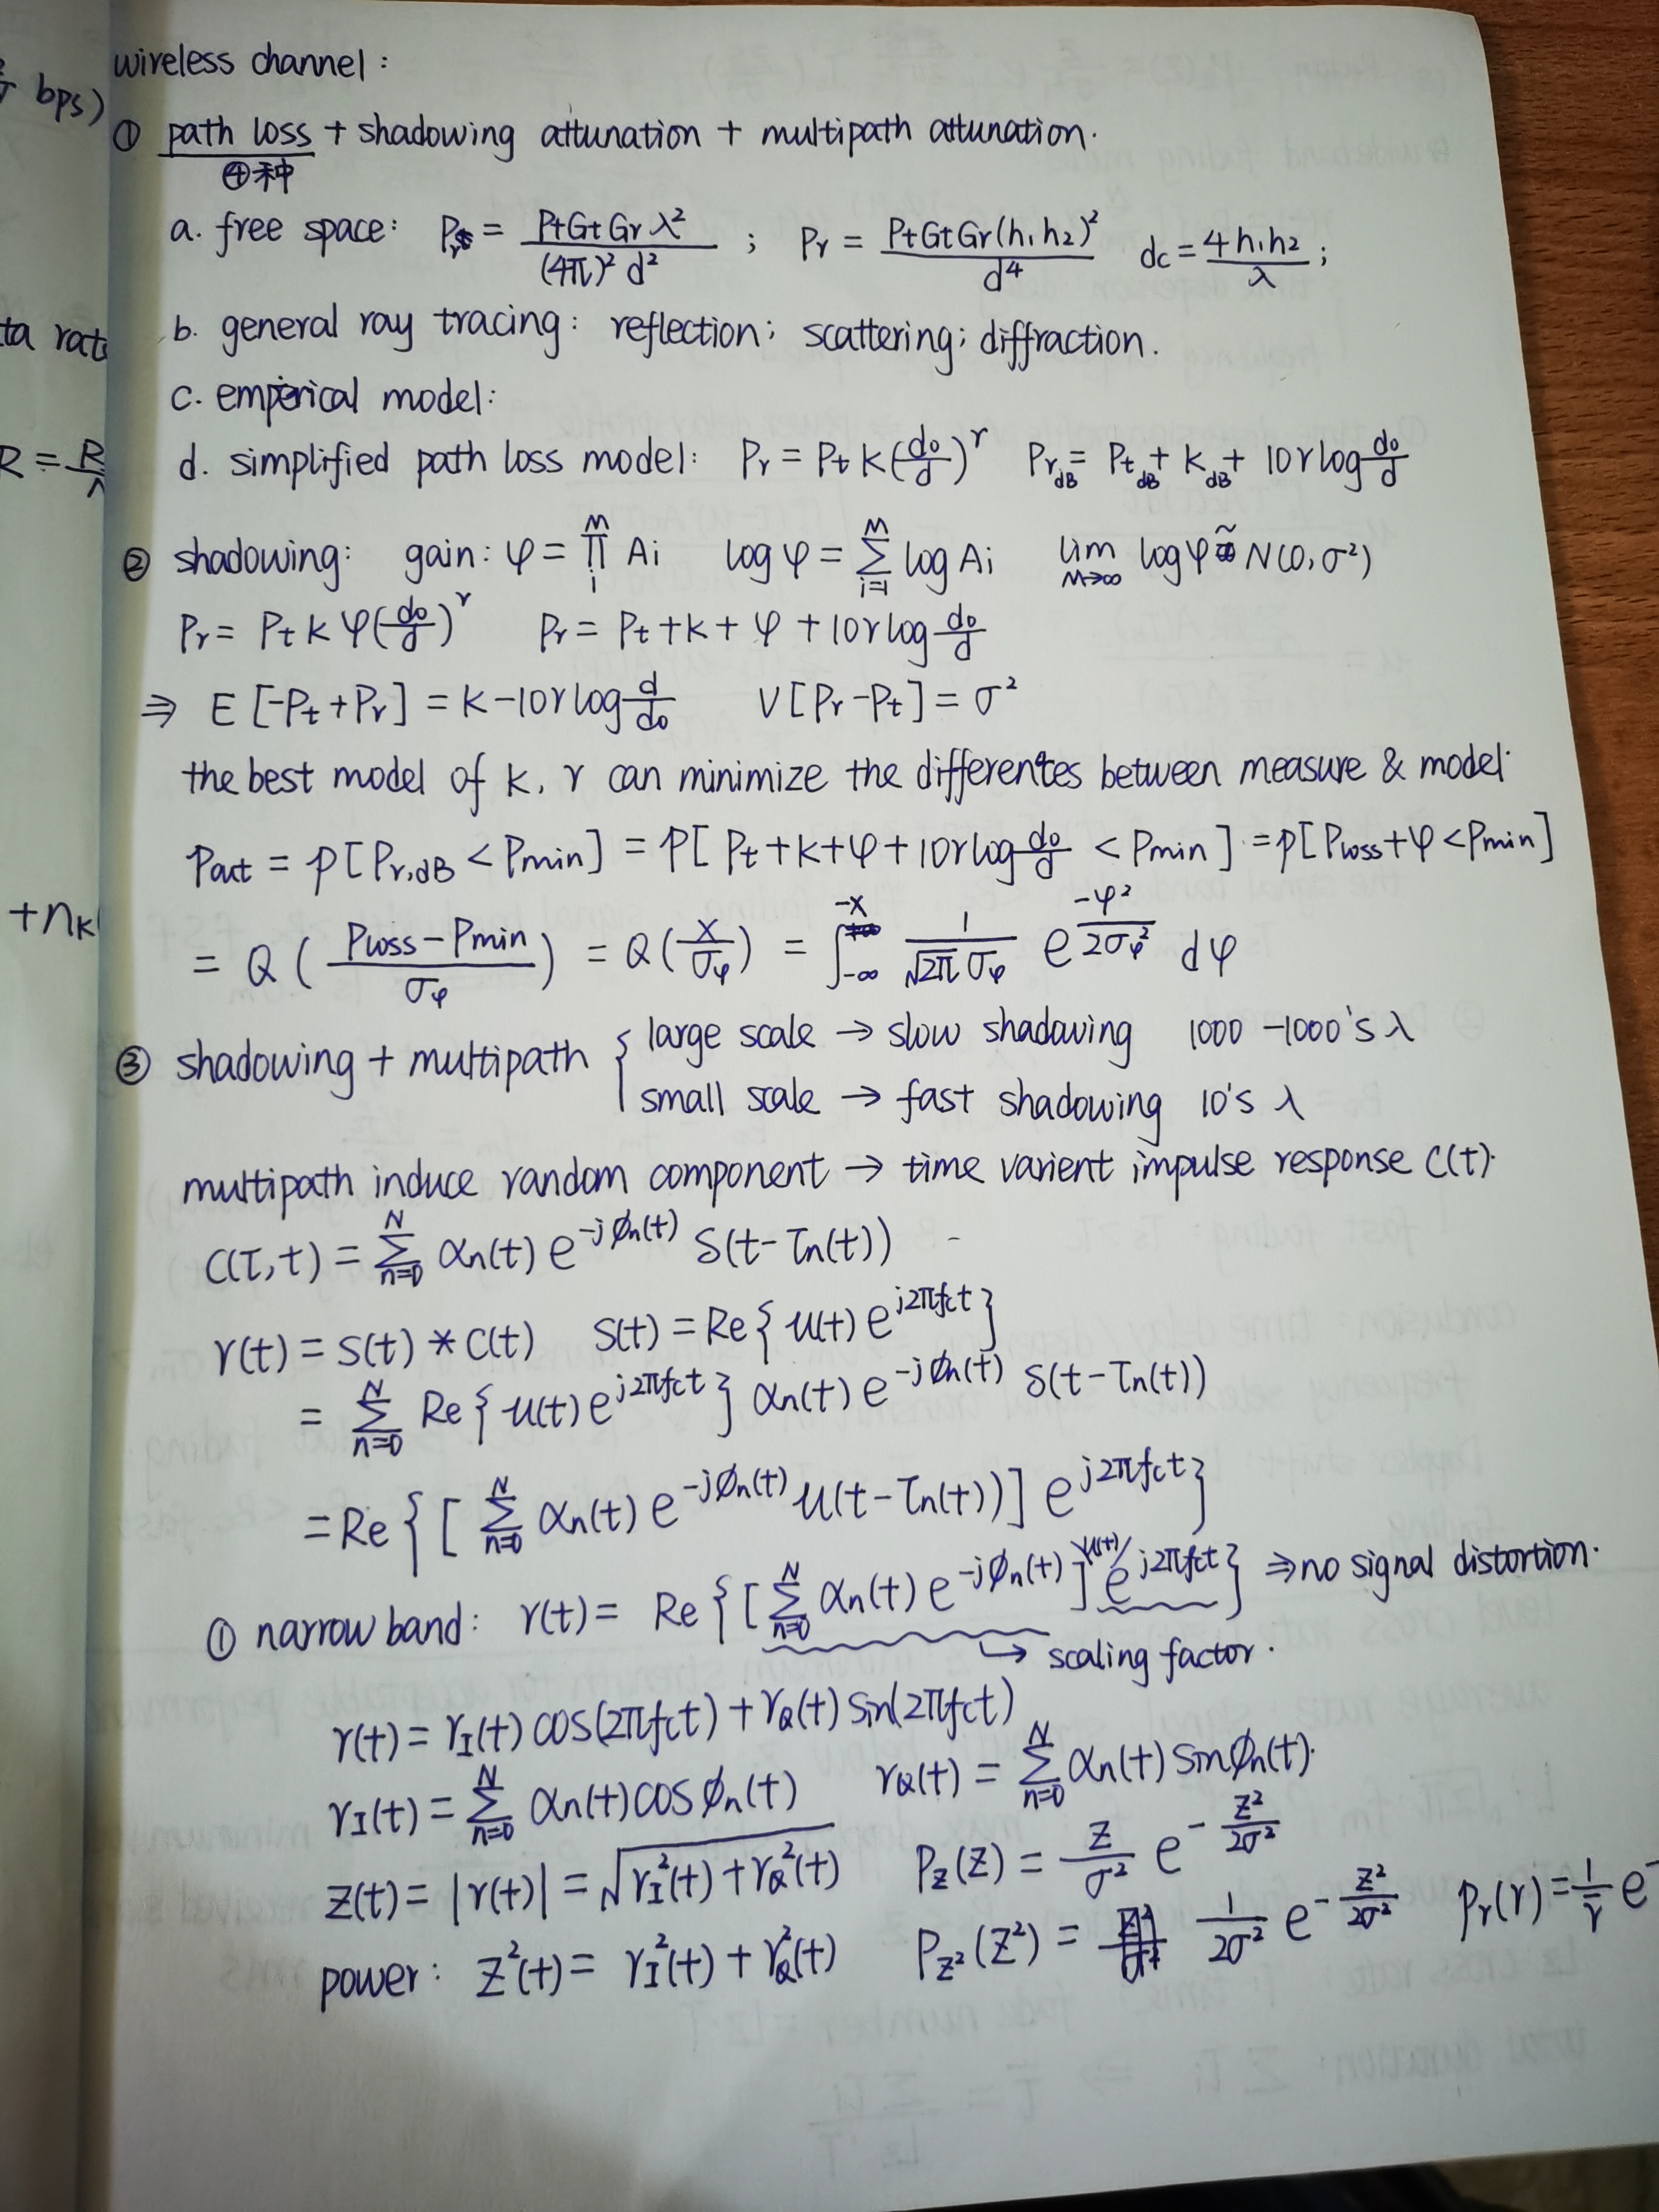 wireless channel :
bps)
① path loss + shadowing attunation + multipath attunation.
④种
a. free space: Pr = PtGtGrλ² / (4π)²d² ; Pr = PtGtGr(h₁h₂)² / d⁴ dc = 4h₁h₂ / λ ;
ta rate
b. general ray tracing: reflection; scattering; diffraction.
c. emperical model:
R = R
d. simplified path loss model: Pr = Pt K(d₀/d)^γ Pr_dB = Pt_dB + K_dB + 10γlog d₀/d
② shadowing: gain: φ = ∏_i^M Ai log φ = Σ_{i=1}^M log Ai lim_{M→∞} log φ ~ N(0, σ²)
Pr = Pt K φ(d₀/d)^γ Pr = Pt + K + φ + 10γlog d₀/d
⇒ E[-Pt+Pr] = K-10γlog d/d₀ V[Pr-Pt] = σ²
the best model of K, γ can minimize the differentes between measure & model
Pout = p[Pr,dB < Pmin] = p[Pt+K+φ+10γlog d₀/d < Pmin] = p[Ploss+φ < Pmin]
+nk
= Q(Ploss-Pmin / σφ) = Q(x/σφ) = ∫_{-∞}^{-x} 1/(√2π σφ) e^{-φ²/2σφ²} dφ
③ shadowing + multipath { large scale → slow shadaving 1000 -1000's λ
small scale → fast shadowing 10's λ
multipath induce random component → time varient impulse response C(t).
C(τ,t) = Σ_{n=0}^N αn(t) e^{-jϕn(t)} δ(t-τn(t))
r(t) = s(t) * C(t) s(t) = Re{u(t) e^{j2πfct}}
= Σ_{n=0}^N Re{u(t) e^{j2πfct}} αn(t) e^{-jϕn(t)} δ(t-τn(t))
= Re{[Σ_{n=0}^N αn(t) e^{-jϕn(t)} u(t-τn(t))] e^{j2πfct}}
① narrow band: r(t) = Re{[Σ_{n=0}^N αn(t) e^{-jϕn(t)}] u(t) e^{j2πfct}} ⇒ no signal distortion.
→ scaling factor.
r(t) = rI(t) cos(2πfct) + rQ(t) sin(2πfct)
rI(t) = Σ_{n=0}^N αn(t) cos ϕn(t) rQ(t) = Σ_{n=0}^N αn(t) sin ϕn(t).
z(t) = |r(t)| = √(rI²(t) + rQ²(t)) Pz(z) = z/σ² e^{-z²/2σ²}
power: z²(t) = rI²(t) + rQ²(t) Pz²(z²) = 1/2σ² e^{-z²/2σ²} Pr(r) = 1/r̄ e^-